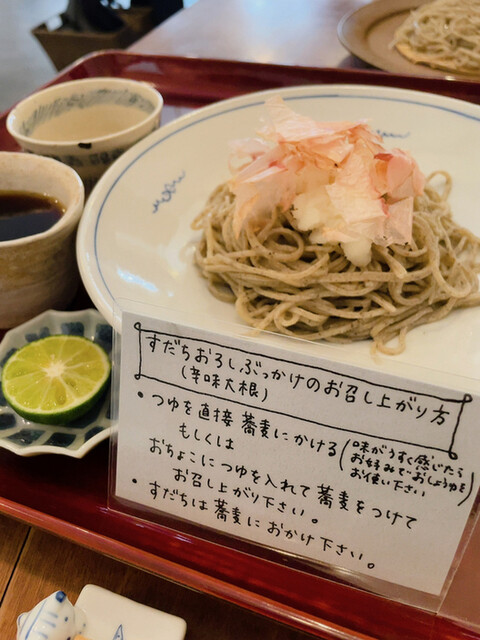 すだちおろしぶっかけのお召し上がり方
(辛味大根)
・つゆを直接蕎麦にかける
もしくは
(味がうすく感じたら
お好みでおしょうゆを
お使い下さい)
おちょこにつゆを入れて蕎麦をつけて
お召し上がり下さい。
・すだちは蕎麦におかけ下さい。